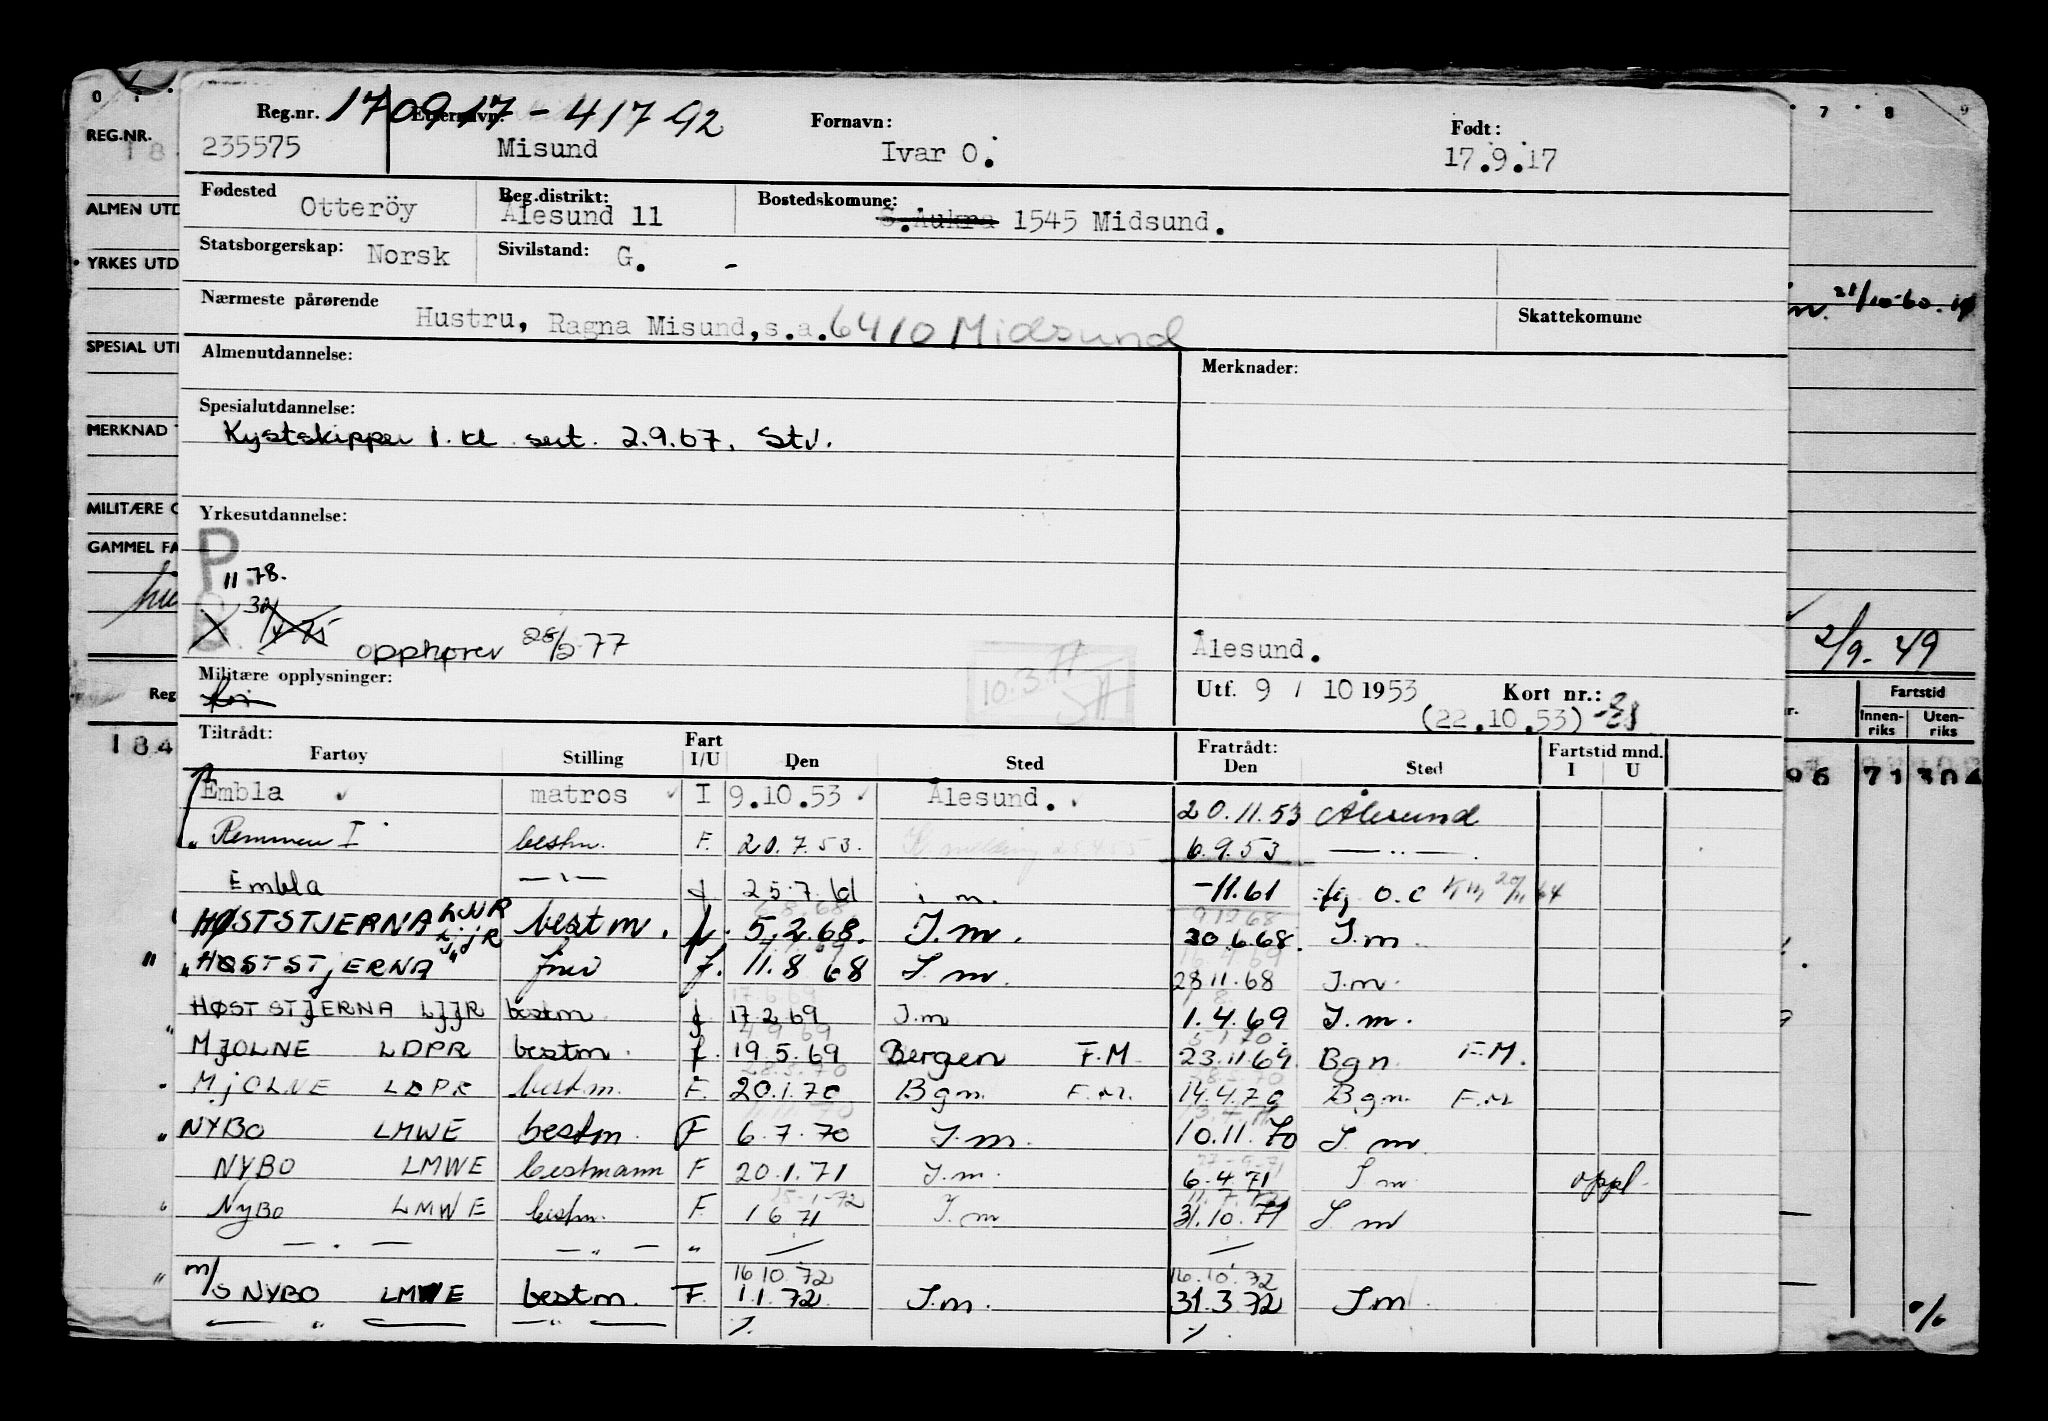 170917 - 41792
Reg.nr. Etternavn: Fornavn: Født:
235575 Misund Ivar O. 17.9.17
Fødested Otteröy Reg.distrikt: Ålesund 11 Bostedskomune: S.Aukra 1545 Midsund.
Statsborgerskap: Norsk Sivilstand: G. -
Nærmeste pårørende Hustru, Ragna Misund, s.a. 6410 Midsund Skattekomune
Almenutdannelse: Merknader:
Spesialutdannelse:
Kystskipper 1. kl sert. 2.9.67. Stv.
Yrkesutdannelse:
P.
11 78.
32
opphører 28/2 77
Ålesund.
Militære opplysninger:
10.3.77
Utf. 9 / 10 1953 Kort nr.:
(22.10.53)
Tiltrådt: Fratrådt: Fartstid mnd.
Fartøy Stilling Fart I/U Den Sted Den Sted I U
Embla matros I 9.10.53 Ålesund. 20.11.53 Ålesund
" Remmen I bestm. F. 20.7.53. 6.9.53 — " —
Embla — " — 25.7.61 i m. -11.61
HØSTSTJERNA LJJR bestm. f. 5.2.68. I.m. 30.6.68. I.m.
" HØSTSTJERNA " f. 11.8 68 I.m. 28 11.68 I.m.
HØSTSTJERNA LJJR bestm f. 17.2 69 I.m 1.4.69 I.m.
MJOLNE LDPR bestm. f. 19.5.69 Bergen F.M. 23.11.69. Bgn. F.M.
MJOLNE LDPR bestm. F. 20.1.70 Bgn. F.M. 14.4.70 Bgn. F.M
" NYBO LMWE bestm. F 6.7.70 I.m. 10.11.70 I m.
NYBO LMWE bestmann F 20.1.71 I.m. 6.4.71 I m. oppl.
NYBO LMWE bestm. F. 1 6.71 I.m 31.10.71 I m
— . — — " — "
16 10.72 16.10.72
m/s NYBO LMWE bestm. F. 1.1.72. I.m. 31.3 72 I.m.
— " — — " —
REG.NR.
ALMEN UTD
YRKES UTD
SPESIAL UT
MERKNAD
MILITÆRE O
GAMMEL FA
Reg
184
7 8 9
21/10-60.
2/9-49
Fartstid
Innen-riks Uten-riks
96 71 304